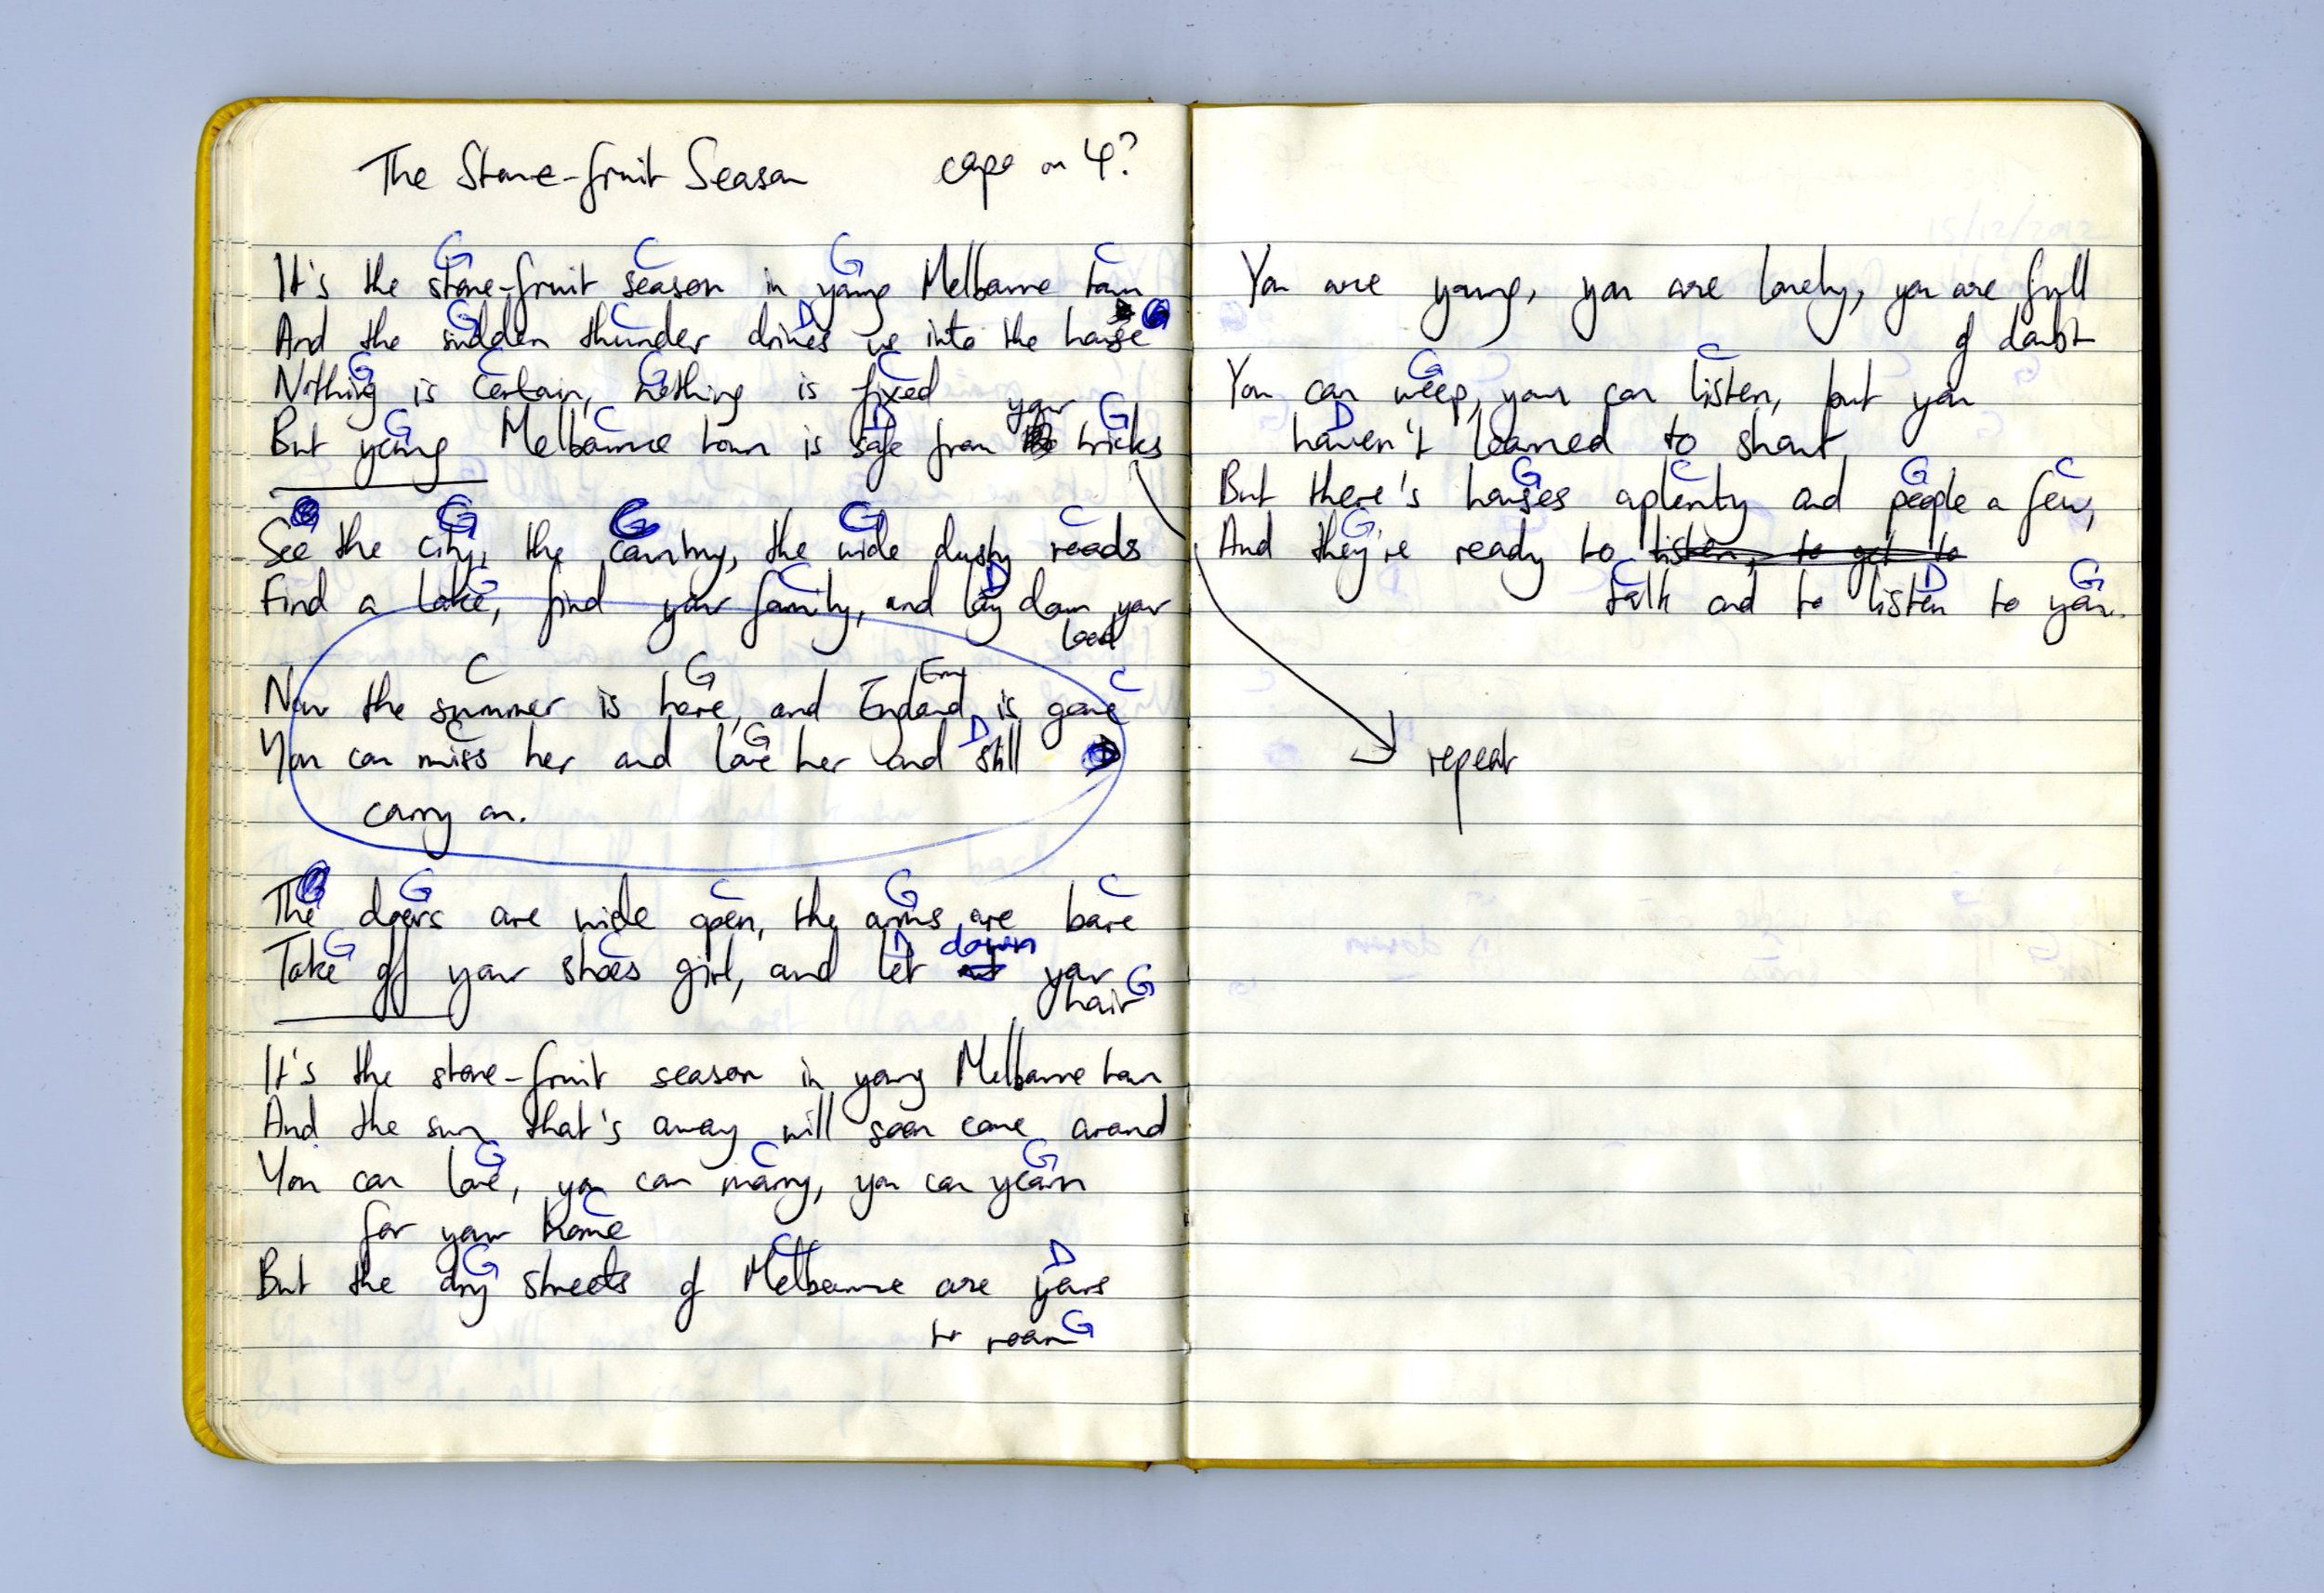 The Stone-fruit Season capo on 4?
G C G C
It's the stone-fruit season in young Melbourne town
G C D G
And the sudden thunder drives us into the house
G C G C
Nothing is certain, nothing is fixed
your
G C D G
But young Melbourne town is safe from tricks
G G G C
See the city, the country, the wide dusty roads
G C D
Find a lake, find your family, and lay down your
load
C G Em C
Now the summer is here, and England is gone
C G D
You can miss her and love her and still
carry on.
G C G C
The doors are wide open, the arms are bare
G C D down
Take off your shoes girl, and let out your
hair G
It's the stone-fruit season in young Melbourne town
And the sun that's away will soon come around
G C G
You can love, you can marry, you can yearn
C
for your home
G C D
But the dry streets of Melbourne are yours
to roam G
15/12/2012
You are young, you are lovely, you are full
of doubt
G C
You can weep, you can listen, but you
D
haven't learned to shout
G C G C
But there's houses aplenty and people a few,
G
And they're ready to listen, to get to
C D G
talk and to listen to you.
repeat